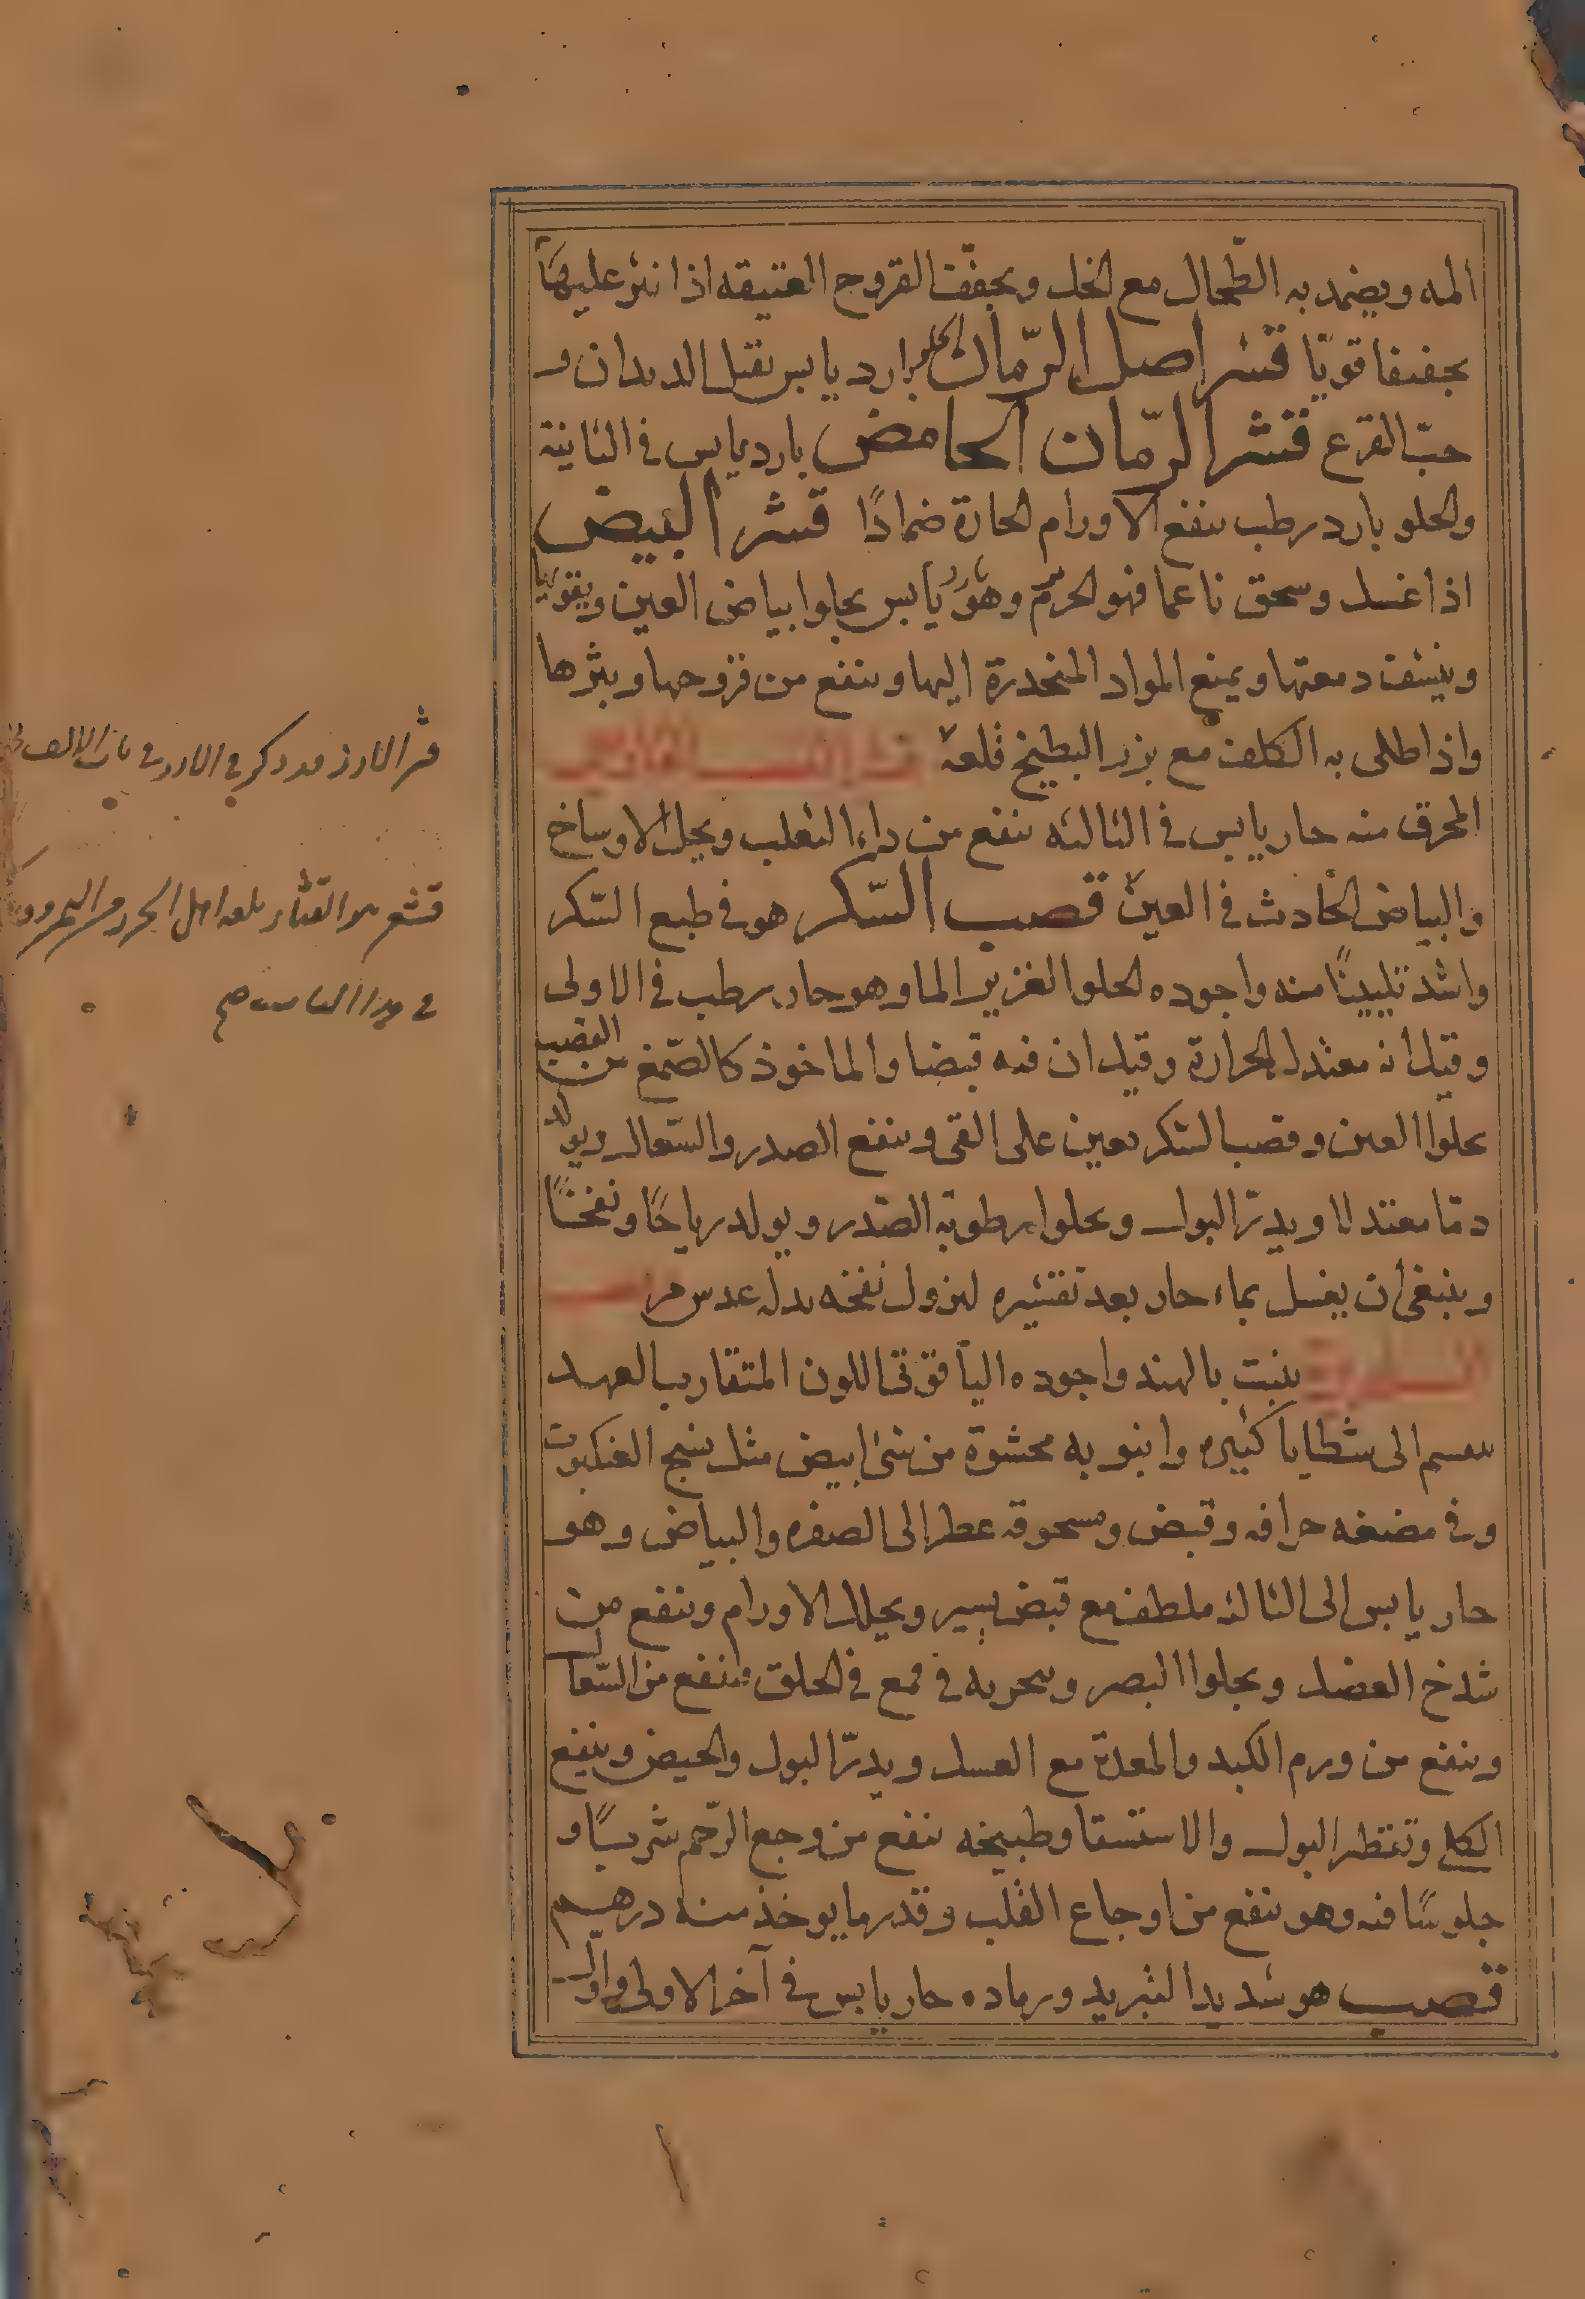 المه ويضمد به الطّحال مع الخل ويجفّف القروح العتيقه اذا نثر عليها
تجفيفا قويّا قشر اصل الرّمان الحلو بارد يابس يقتل الديدان و
حبّ القرع قشر الرّمان الحامض بارد يابس في الثانية
والحلو بارد رطب ينفع الاورام الحارة ضمادًا قشر البيض
اذا غسل وسحق ناعما فهو الخرم وهو يابس يجلوا بياض العين ويقويها
وينشف دمعتها ويمنع المواد المنحدرة اليها وينفع من قروحها وبثرها
واذا طلى به الكلف مع بزر البطيخ قلعه قشر القصب الفارسي
المحرق منه حار يابس في الثالثه ينفع من داء الثعلب ويجلى الاوساخ
والبياض الحادث في العين قصب السّكر هو في طبع السّكر
واشد تليينًا منه واجوده الحلو الغزير الما وهو حار رطب في الاولى
وقيل انه معتدل الحرارة وقيل ان فيه قبضا والماخوذ كالصّمغ من القصب
يجلوا العين وقصب السّكر يعين على القى وينفع الصدر والسّعال ويولد
دمّا معتدلا ويدرّ البول ويجلوا رطوبة الصّدر ويولد رياحًا ونفخًا
وينبغى أن يغسل بماء حار بعد تقشيره ليزول نفخه بدله عدس مر قصب
الذريرة ينبت بالهند واجوده الياقوتى اللون المتقارب العهد
ينقسم الى شظايا كثيره وانبوبه محشوة من شئ ابيض مثل نسج العنكبوت
وفي مضغه حرافه وقبض ومسحوقه عطر الى الصفره والبياض وهو
حار يابس الى الثالثه ملطف مع قبض يسير ويحلل الاورام وينفع من
شدخ العضل ويجلوا البصر وبخوره في قمع في الحلق ينفع من السّعال
وينفع من ورم الكبد والمعدة مع العسل ويدرّ البول والحيض وينفع
الكلى وتقطر البول والاستسقا وطبيخه ينفع من وجع الرّحم شربًا و
جلوسًا فيه وهو ينفع من اوجاع القلب وقدر ما يوخذ منه درهم
قصب هو شديد التبريد ورماده حار يابس في آخر الاولى واوّل
قشر الارز قد ذكر في الارز في باب الالف
قشع هو القثاء بلغة اهل
في هذا